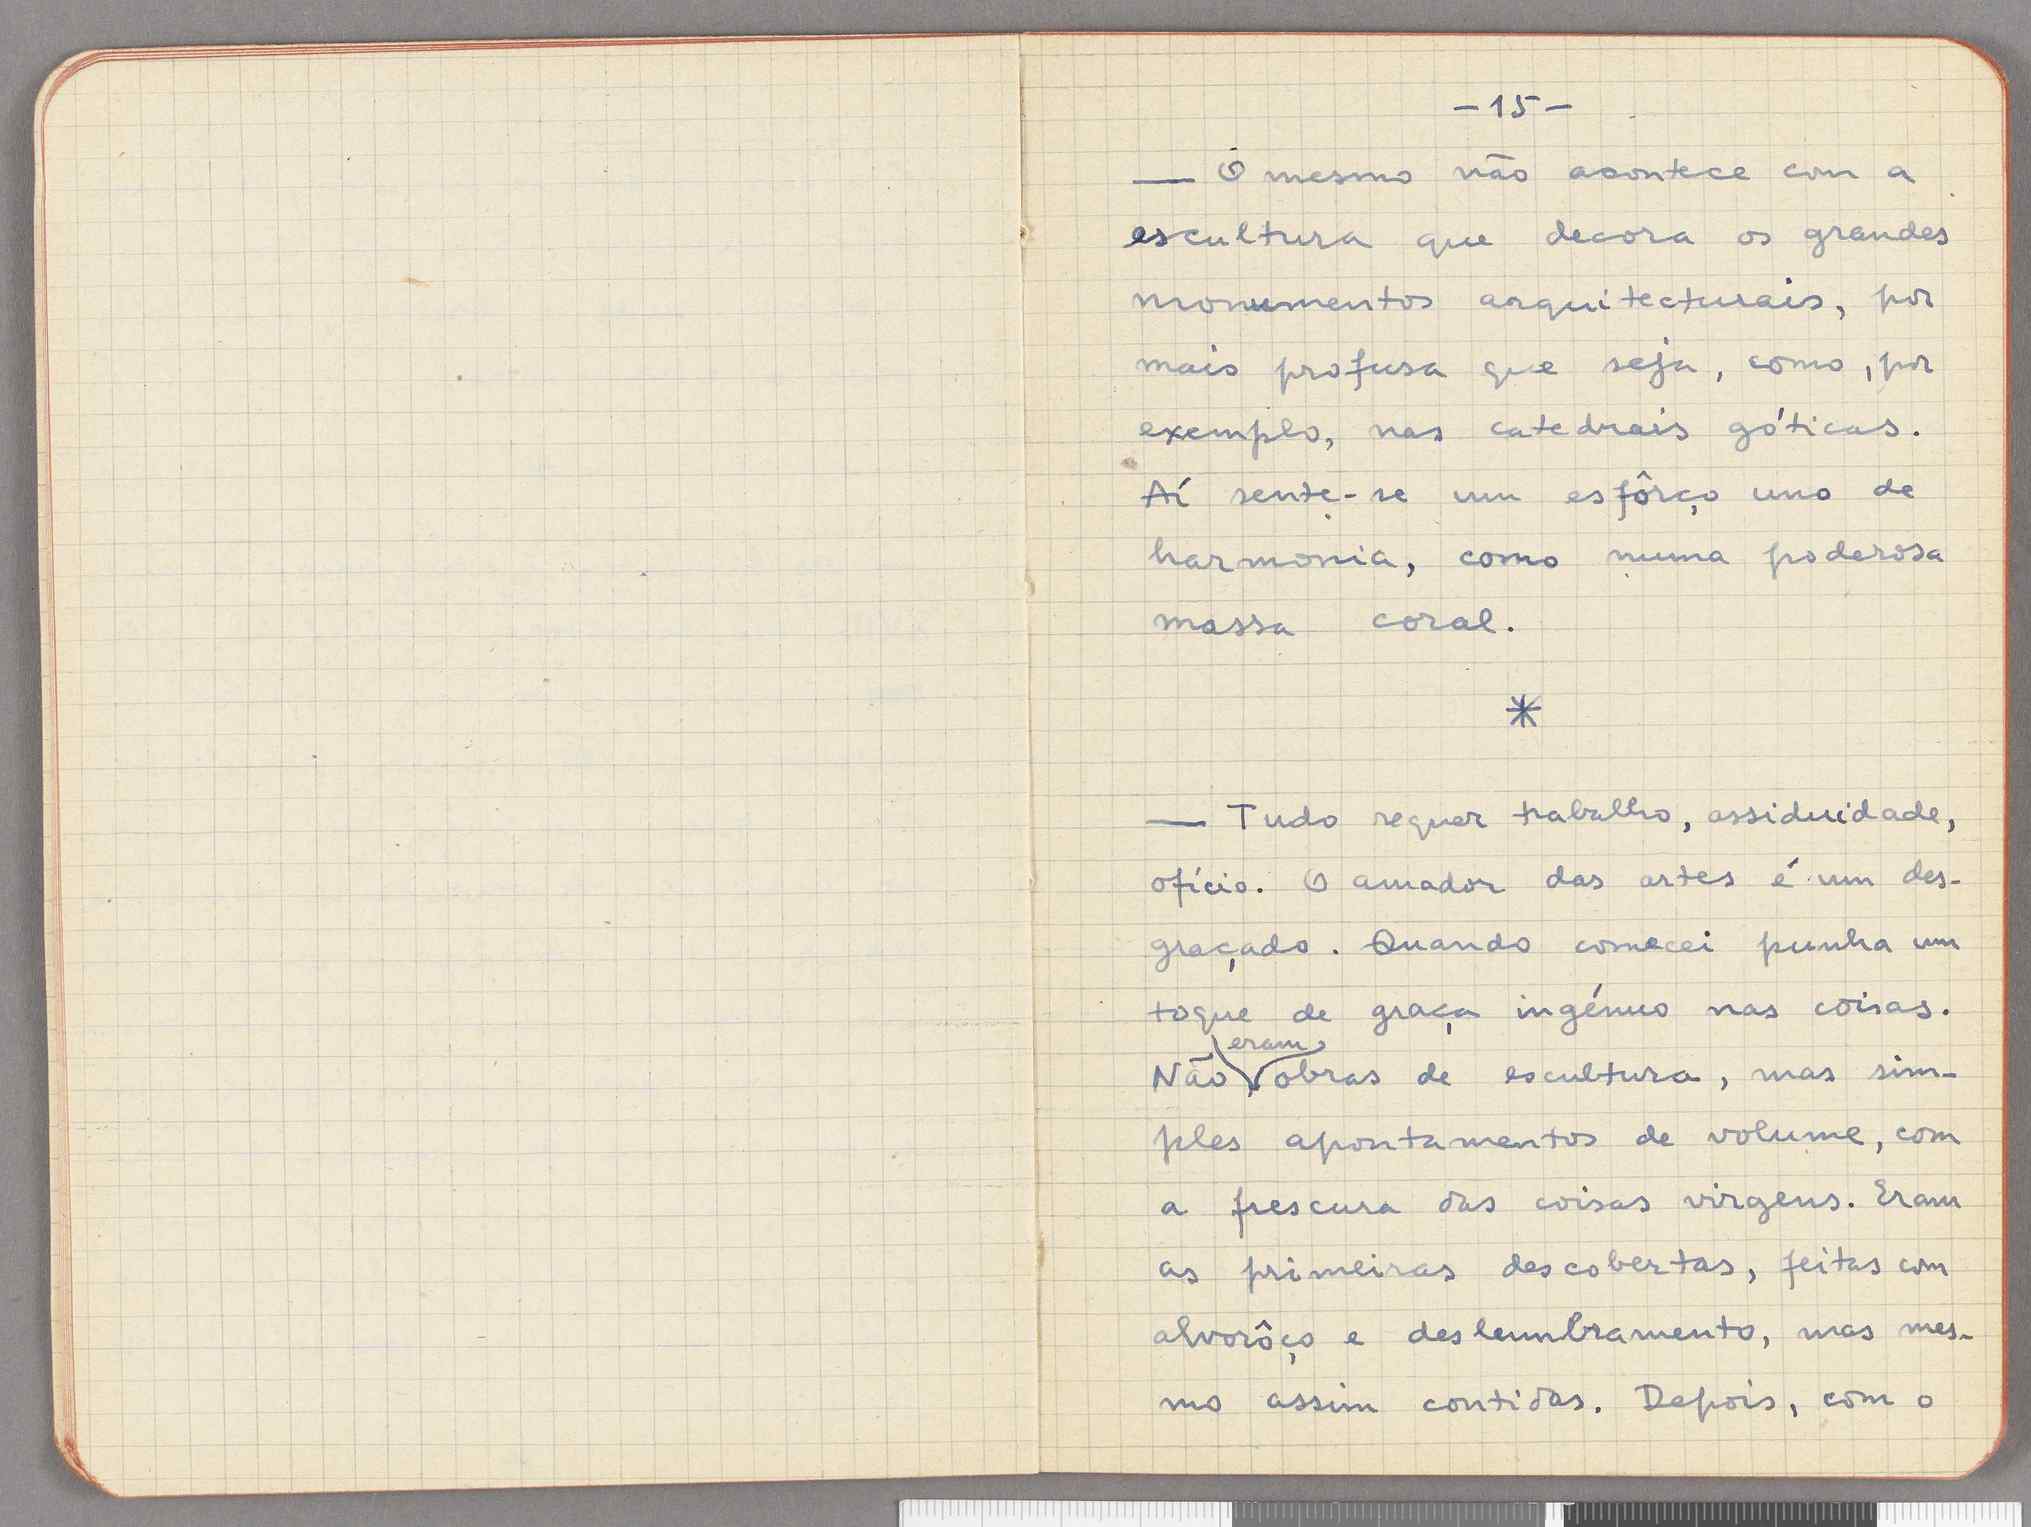 -15-
— O mesmo não acontece com a
escultura que decora os grandes
monumentos arquitecturais, por
mais profusa que seja, como, por
exemplo, nas catedrais góticas.
Aí sente-se um esfôrço uno de
harmonia, como numa poderosa
massa coral.
*
— Tudo requer trabalho, assiduidade,
ofício. O amador das artes é um des-
graçado. Quando comecei punha um
toque de graça ingénuo nas coisas.
eram
Não obras de escultura, mas sim-
ples apontamentos de volume, com
a frescura das coisas virgens. Eram
as primeiras descobertas, feitas com
alvorôço e deslumbramento, mas mes-
mo assim contidas. Depois, com o